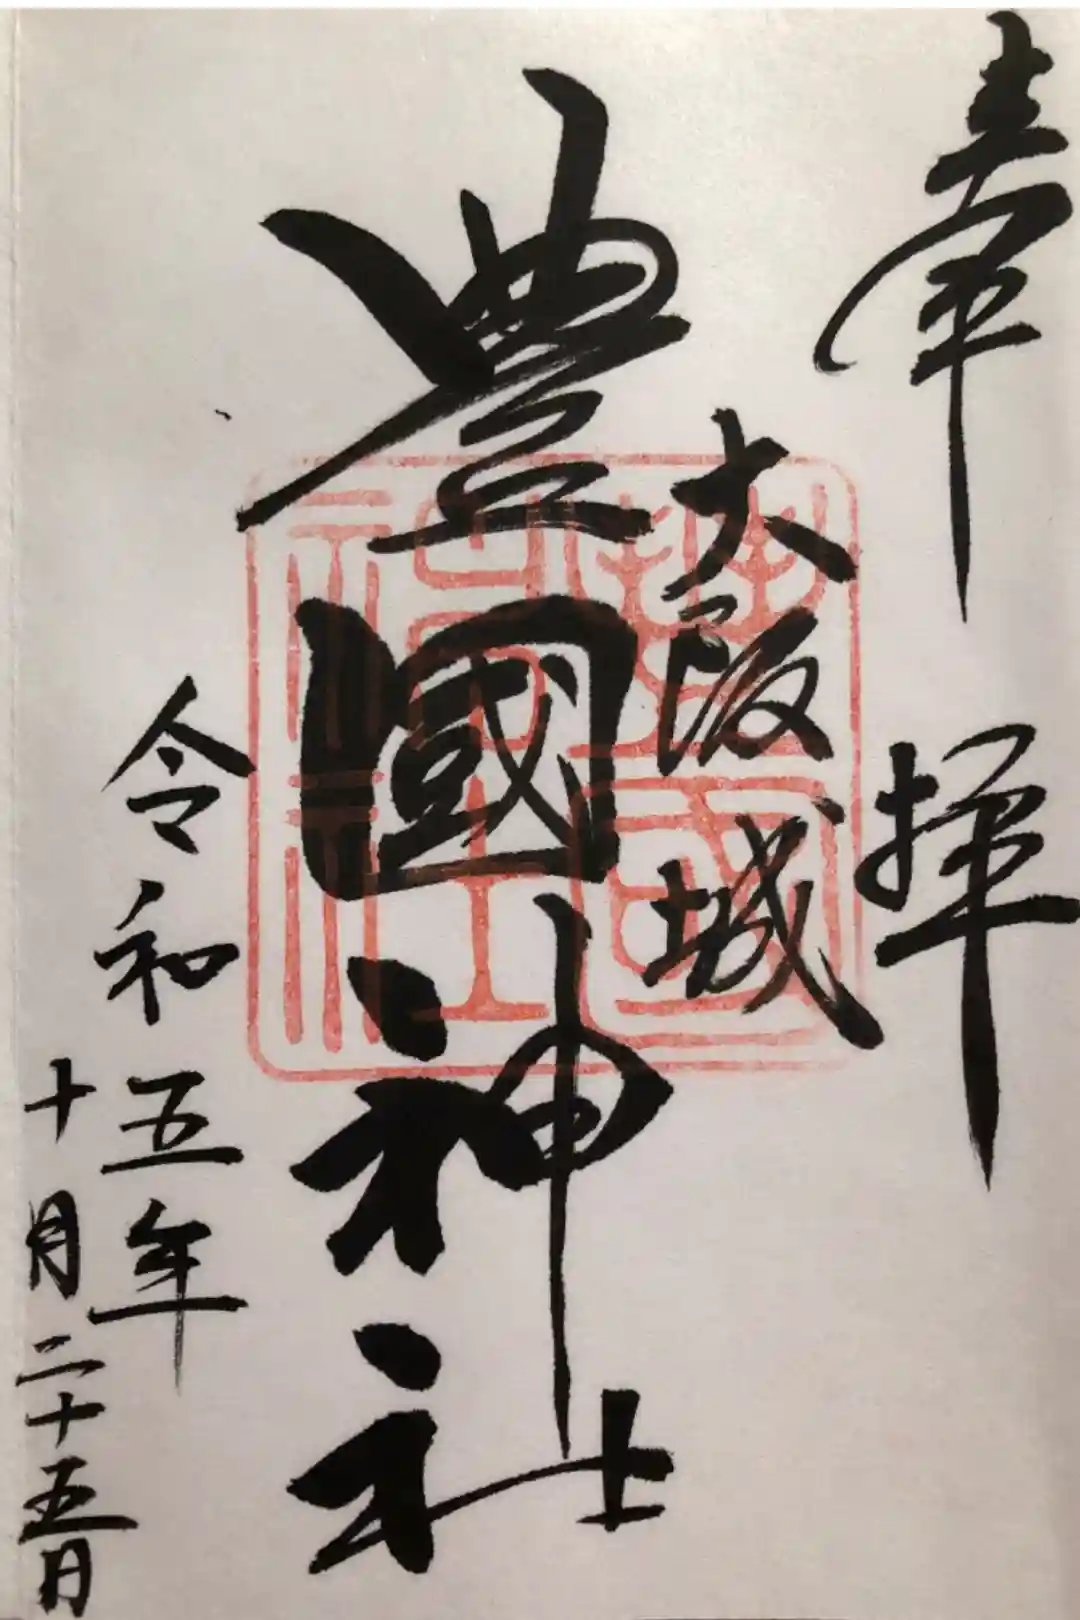 奉拝
大阪城
豊國神社
令和五年
十月二十五日
豊國神社